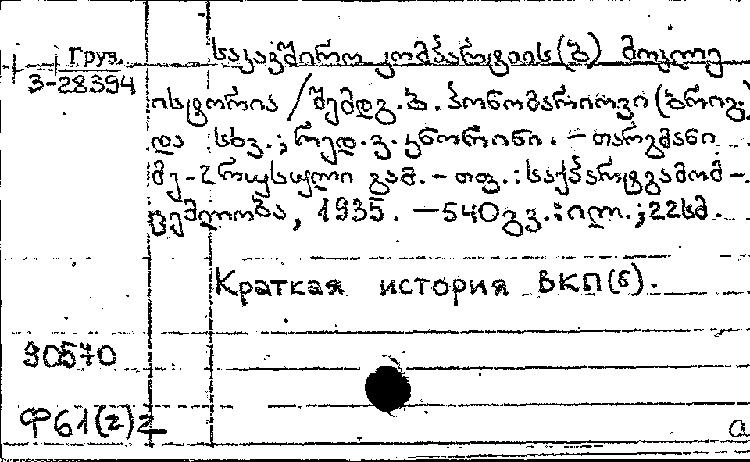 Груз.
3-28394
საკავშირო კომპარტიის(ბ) მოკლე
ისტორია / შემდგ. ბ. პონომარიოვი (ბრიგ.)
და სხვ.; რედ. ვ. კნორინი. - თარგმანი
მე-2 რუსული გამ. - თფ. : საქპარტგამომ-
ცემლობა, 1935. - 540 გვ. : ილ. ; 22 სმ.
Краткая история ВКП(б).
90570
Ф61(2)2